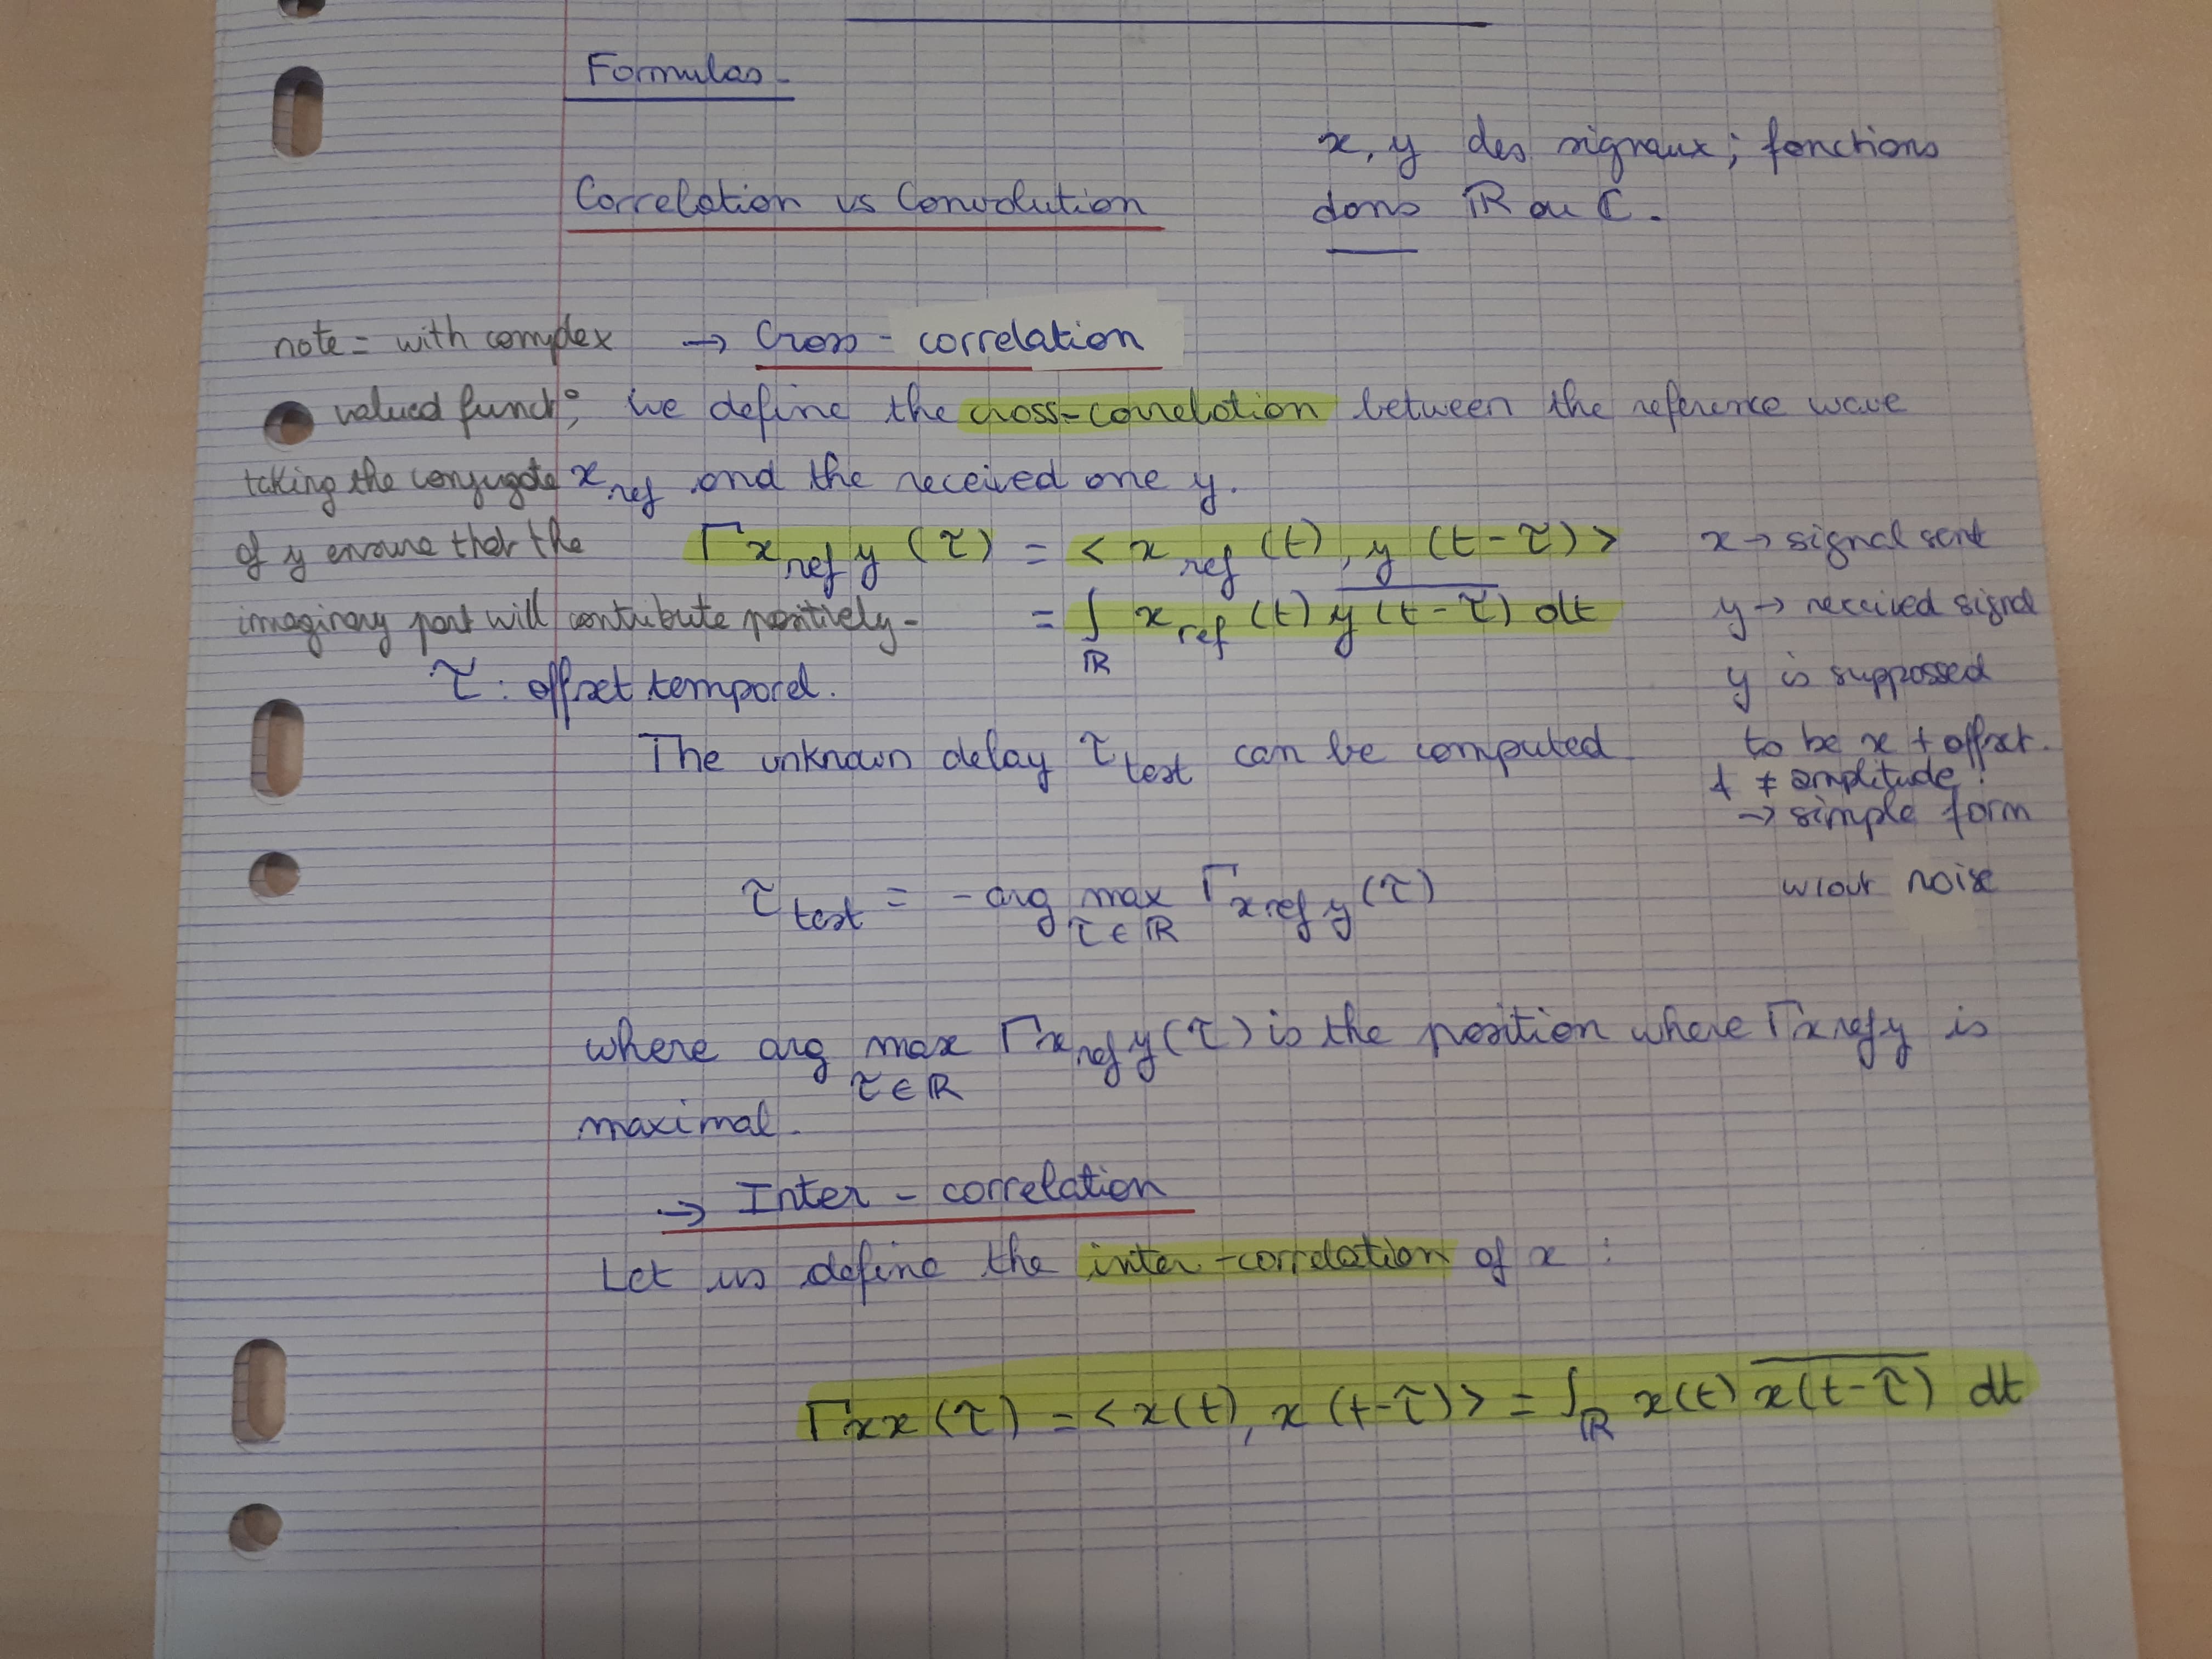 Formulas-
x, y des signaux ; fonctions
dans ℝ ou ℂ.
Correlation vs Convolution
→ Cross-correlation
note = with complex
valued funct°;
taking the conjugate
of y ensure that the
imaginary part will contribute positively-
We define the cross-correlation between the reference wave
x_ref and the received one y.
Γx_ref y (τ) = < x_ref (t), y (t-τ) >
= ∫_ℝ x_ref (t) \overline{y (t-τ)} dt
x → signal sent
y → received signal
y is suppossed
to be x + offset.
+ ≠ amplitude !
→ simple form
w/out noise
τ : offset temporel.
The unknown delay τ_test can be computed
τ_test = - arg max_{τ∈ℝ} Γ_{x_ref y} (τ)
where arg max_{τ∈ℝ} Γx_ref y (τ) is the position where Γx_ref y is
maximal.
→ Inter-correlation
Let us define the inter-correlation of x :
Γxx (τ) = < x(t), x (t-τ) > = ∫_ℝ x(t) \overline{x(t-τ)} dt